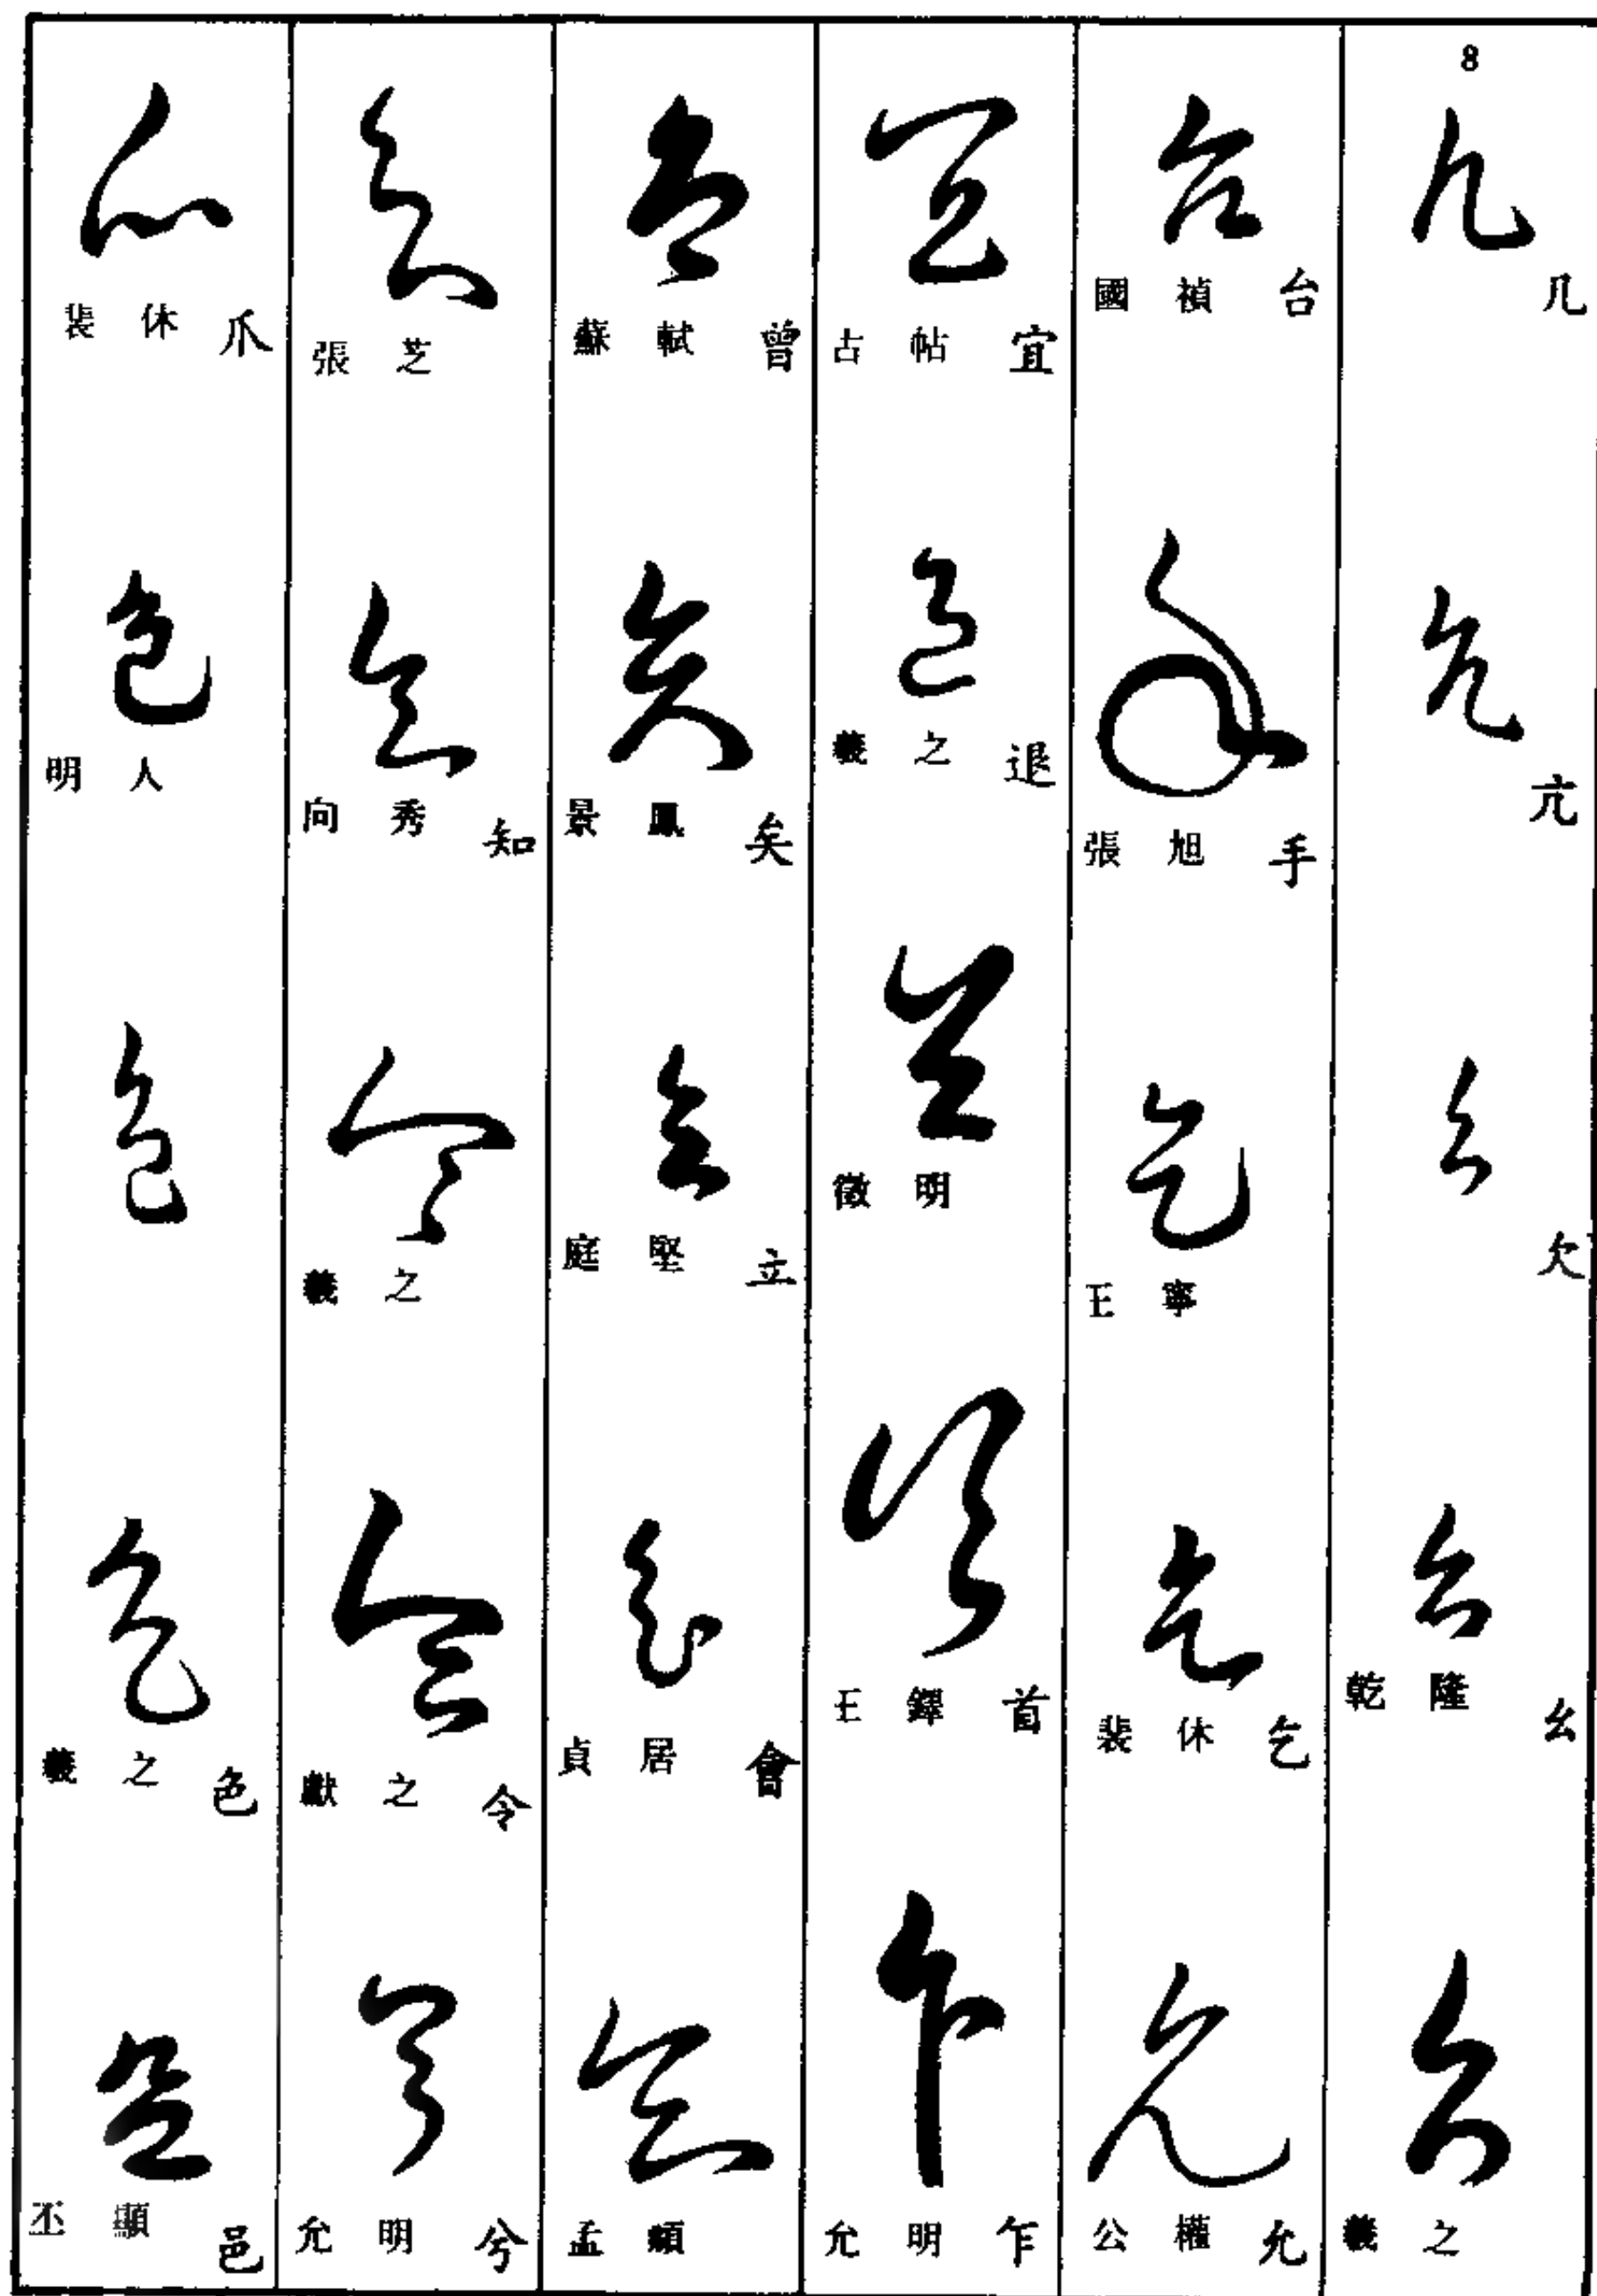 8
几
亢
欠
乾隆 幺
羲之
國禎 台
張旭 手
王寧
裴休 乞
公權 允
古帖 宜
羲之 退
徵明
王鐸 首
允明 乍
蘇軾 曾
景鳳 矣
庭堅 立
貞居 會
孟頫
張芝
向秀 知
羲之
獻之 令
允明 兮
裴休 爪
明人
羲之 色
丕顯 邑